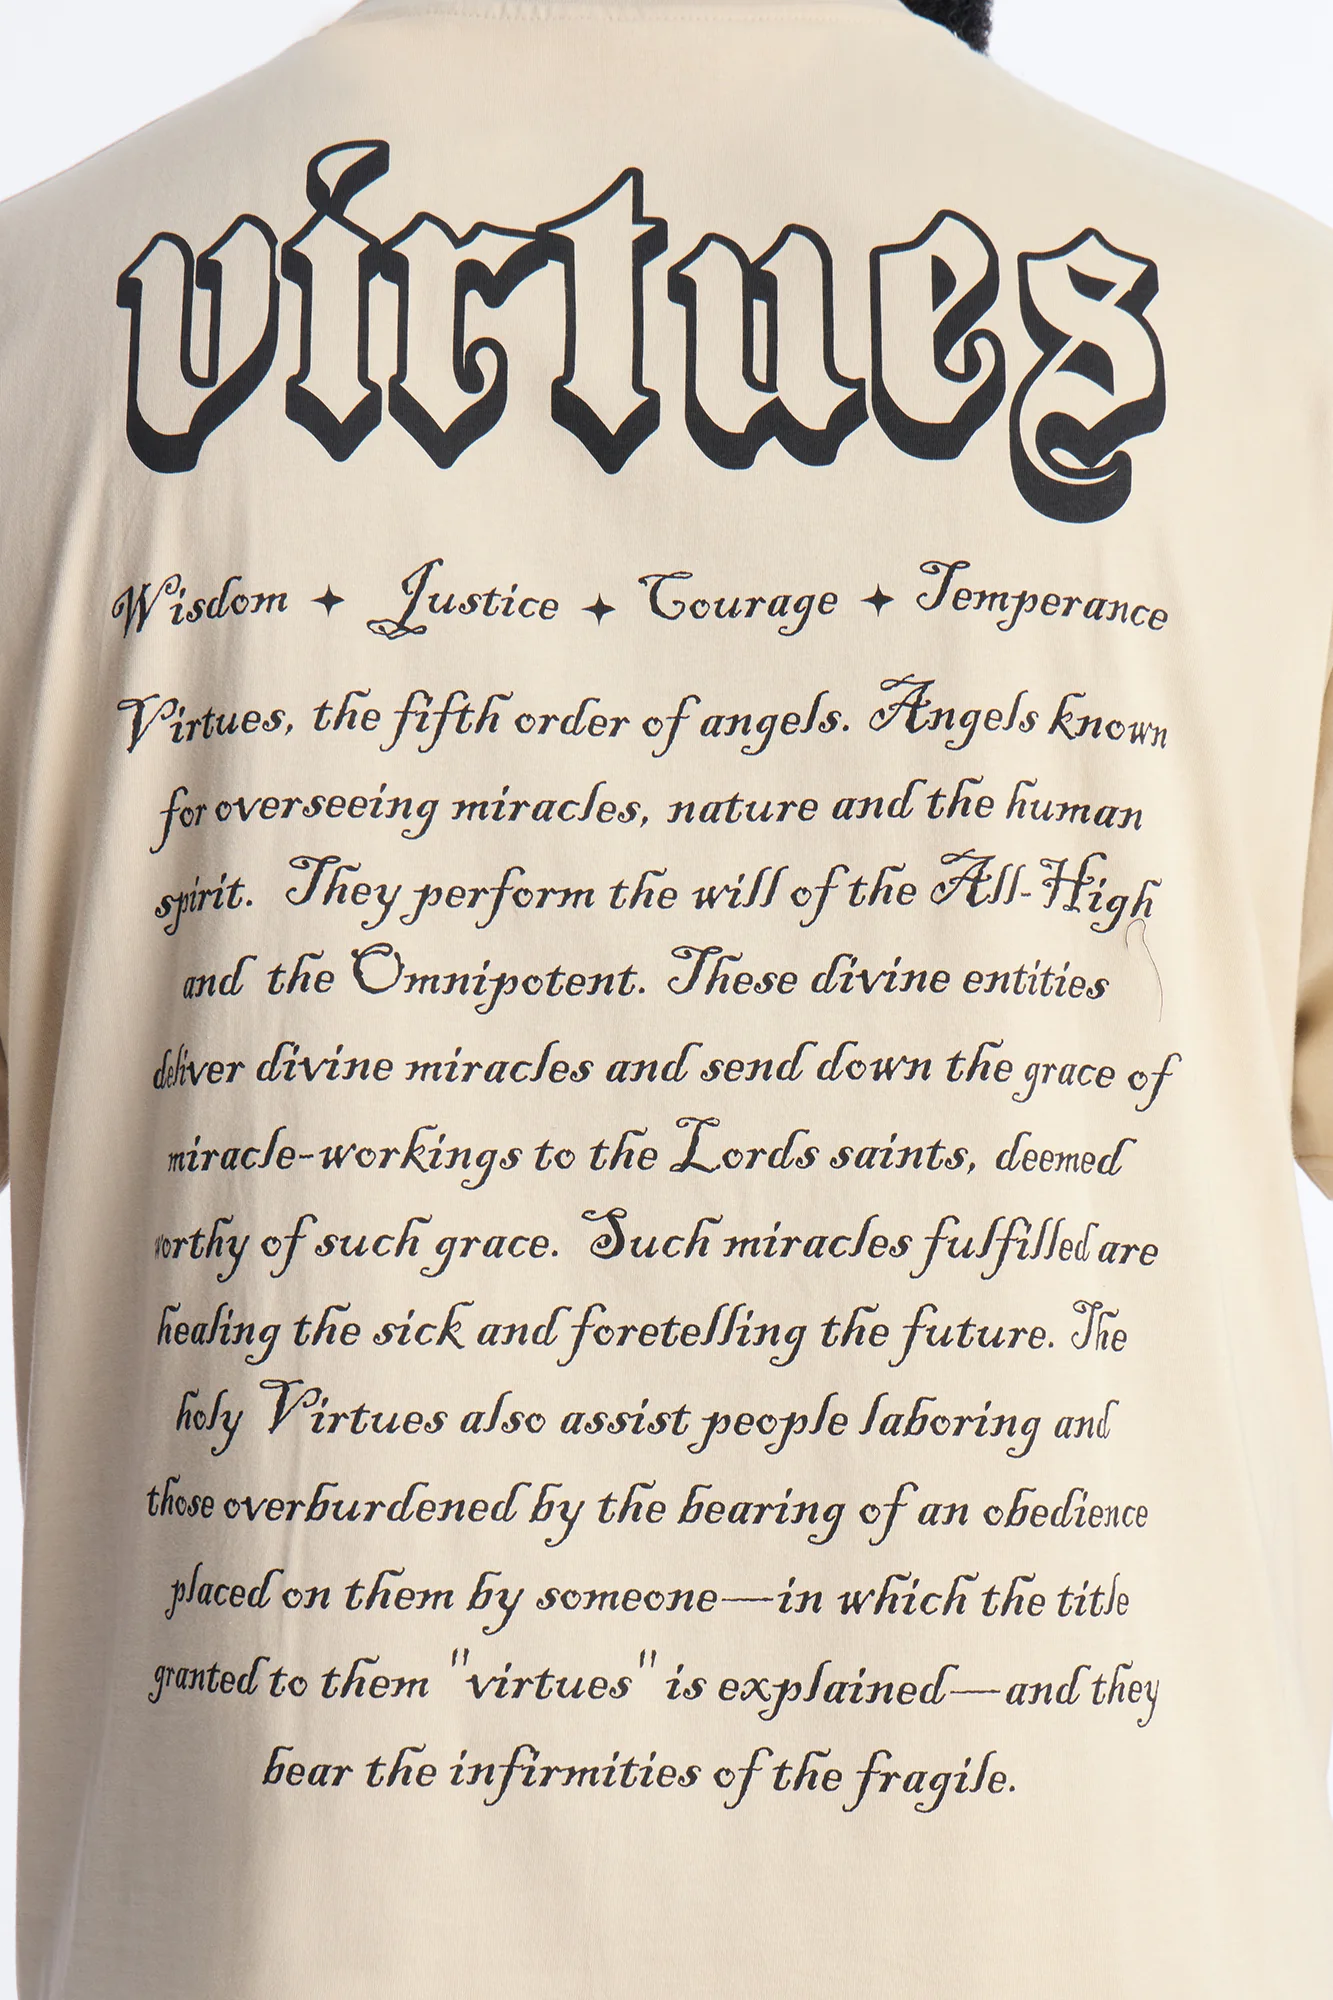 virtues
Wisdom ✦ Justice ✦ Courage ✦ Temperance
Virtues, the fifth order of angels. Angels known
for overseeing miracles, nature and the human
spirit. They perform the will of the All-High
and the Omnipotent. These divine entities
deliver divine miracles and send down the grace of
miracle-workings to the Lords saints, deemed
worthy of such grace. Such miracles fulfilled are
healing the sick and foretelling the future. The
holy Virtues also assist people laboring and
those overburdened by the bearing of an obedience
placed on them by someone—in which the title
granted to them "virtues" is explained—and they
bear the infirmities of the fragile.